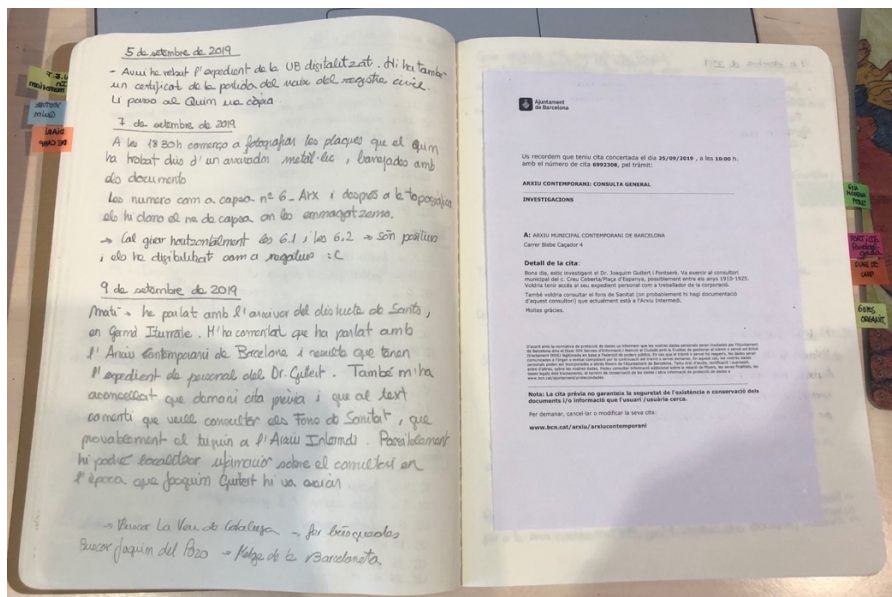 5 de setembre de 2019
- Avui he rebut l'expedient de la UB digitalitzat. Hi ha també
un certificat de la partida del naix del registre civil.
Li passo al Quim una còpia
7 de setembre de 2019
A les 18 30h començo a fotografiar les plaques que el Quim
ha trobat dins d'un arxivador metàl·lic, barrejades amb
els documents
Les numero com a capsa nº 6_Arx i després a la topogràfica
els hi dono el nº de capsa on les emmagatzemo.
→ Cal girar horitzontalment les 6.1 i les 6.2 → són positius
i els he digitalitzat com a negatius :C
9 de setembre de 2019
Matí → he parlat amb l'arxiver del districte de Sants,
en Germà Iturrate. M'ha comentat que ha parlat amb
l'Arxiu Contemporani de Barcelona i resulta que tenen
l'expedient de personal del Dr. Guitert. També m'ha
aconsellat que demani cita prèvia i que al text
comenti que vull consultar els Fons de Sanitat, que
provablement el tinguin a l'Arxiu Intermdi. Possiblement
hi podré localitzar informació sobre el consultori en
l'època que Joaquim Guitert hi va exercir
→ Buscar La Veu de Catalunya → fer búsquedes
Buscar Joaquim del Pozo → Metge de la Barceloneta
Ajuntament
de Barcelona
Us recordem que teniu cita concertada el dia 25/09/2019 , a les 10:00 h.
amb el número de cita 6992308, pel tràmit:
ARXIU CONTEMPORANI: CONSULTA GENERAL
INVESTIGACIONS
A: ARXIU MUNICIPAL CONTEMPORANI DE BARCELONA
Carrer Bisbe Caçador 4
Detall de la cita:
Bona dia, estic investigant el Dr. Joaquim Guitert i Fontseré. Va exercir al consultori
municipal del c. Creu Coberta/Plaça d'Espanya, possiblement entre els anys 1910-1925.
Voldria tenir accés al seu expedient personal com a treballador de la corporació.
També voldria consultar el fons de Sanitat (on probablement hi hagi documentació
d'aquest consultori) que actualment està a l'Arxiu Intermedi.
Moltes gràcies.
Nota: La cita prèvia no garanteix la seguretat de l'existència o conservació dels
documents i/o informació que l'usuari /usuària cerca.
Per demanar, cancel·lar o modificar la seva cita:
www.bcn.cat/arxiu/arxiucontemporani